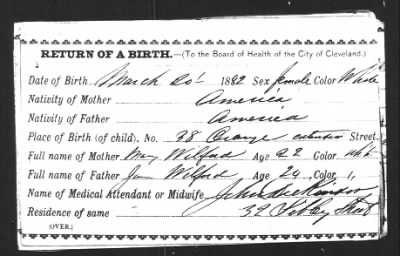 RETURN OF A BIRTH.—(To the Board of Health of the City of Cleveland.)
Date of Birth March 20 1882 Sex female Color White
Nativity of Mother America
Nativity of Father America
Place of Birth (of child), No. 28 Orange extension Street.
Full name of Mother Mary Wilford Age 22 Color
Full name of Father Wilford Age 24 Color
Name of Medical Attendant or Midwife, John Dickinson
Residence of same 32 Street
(OVER.)